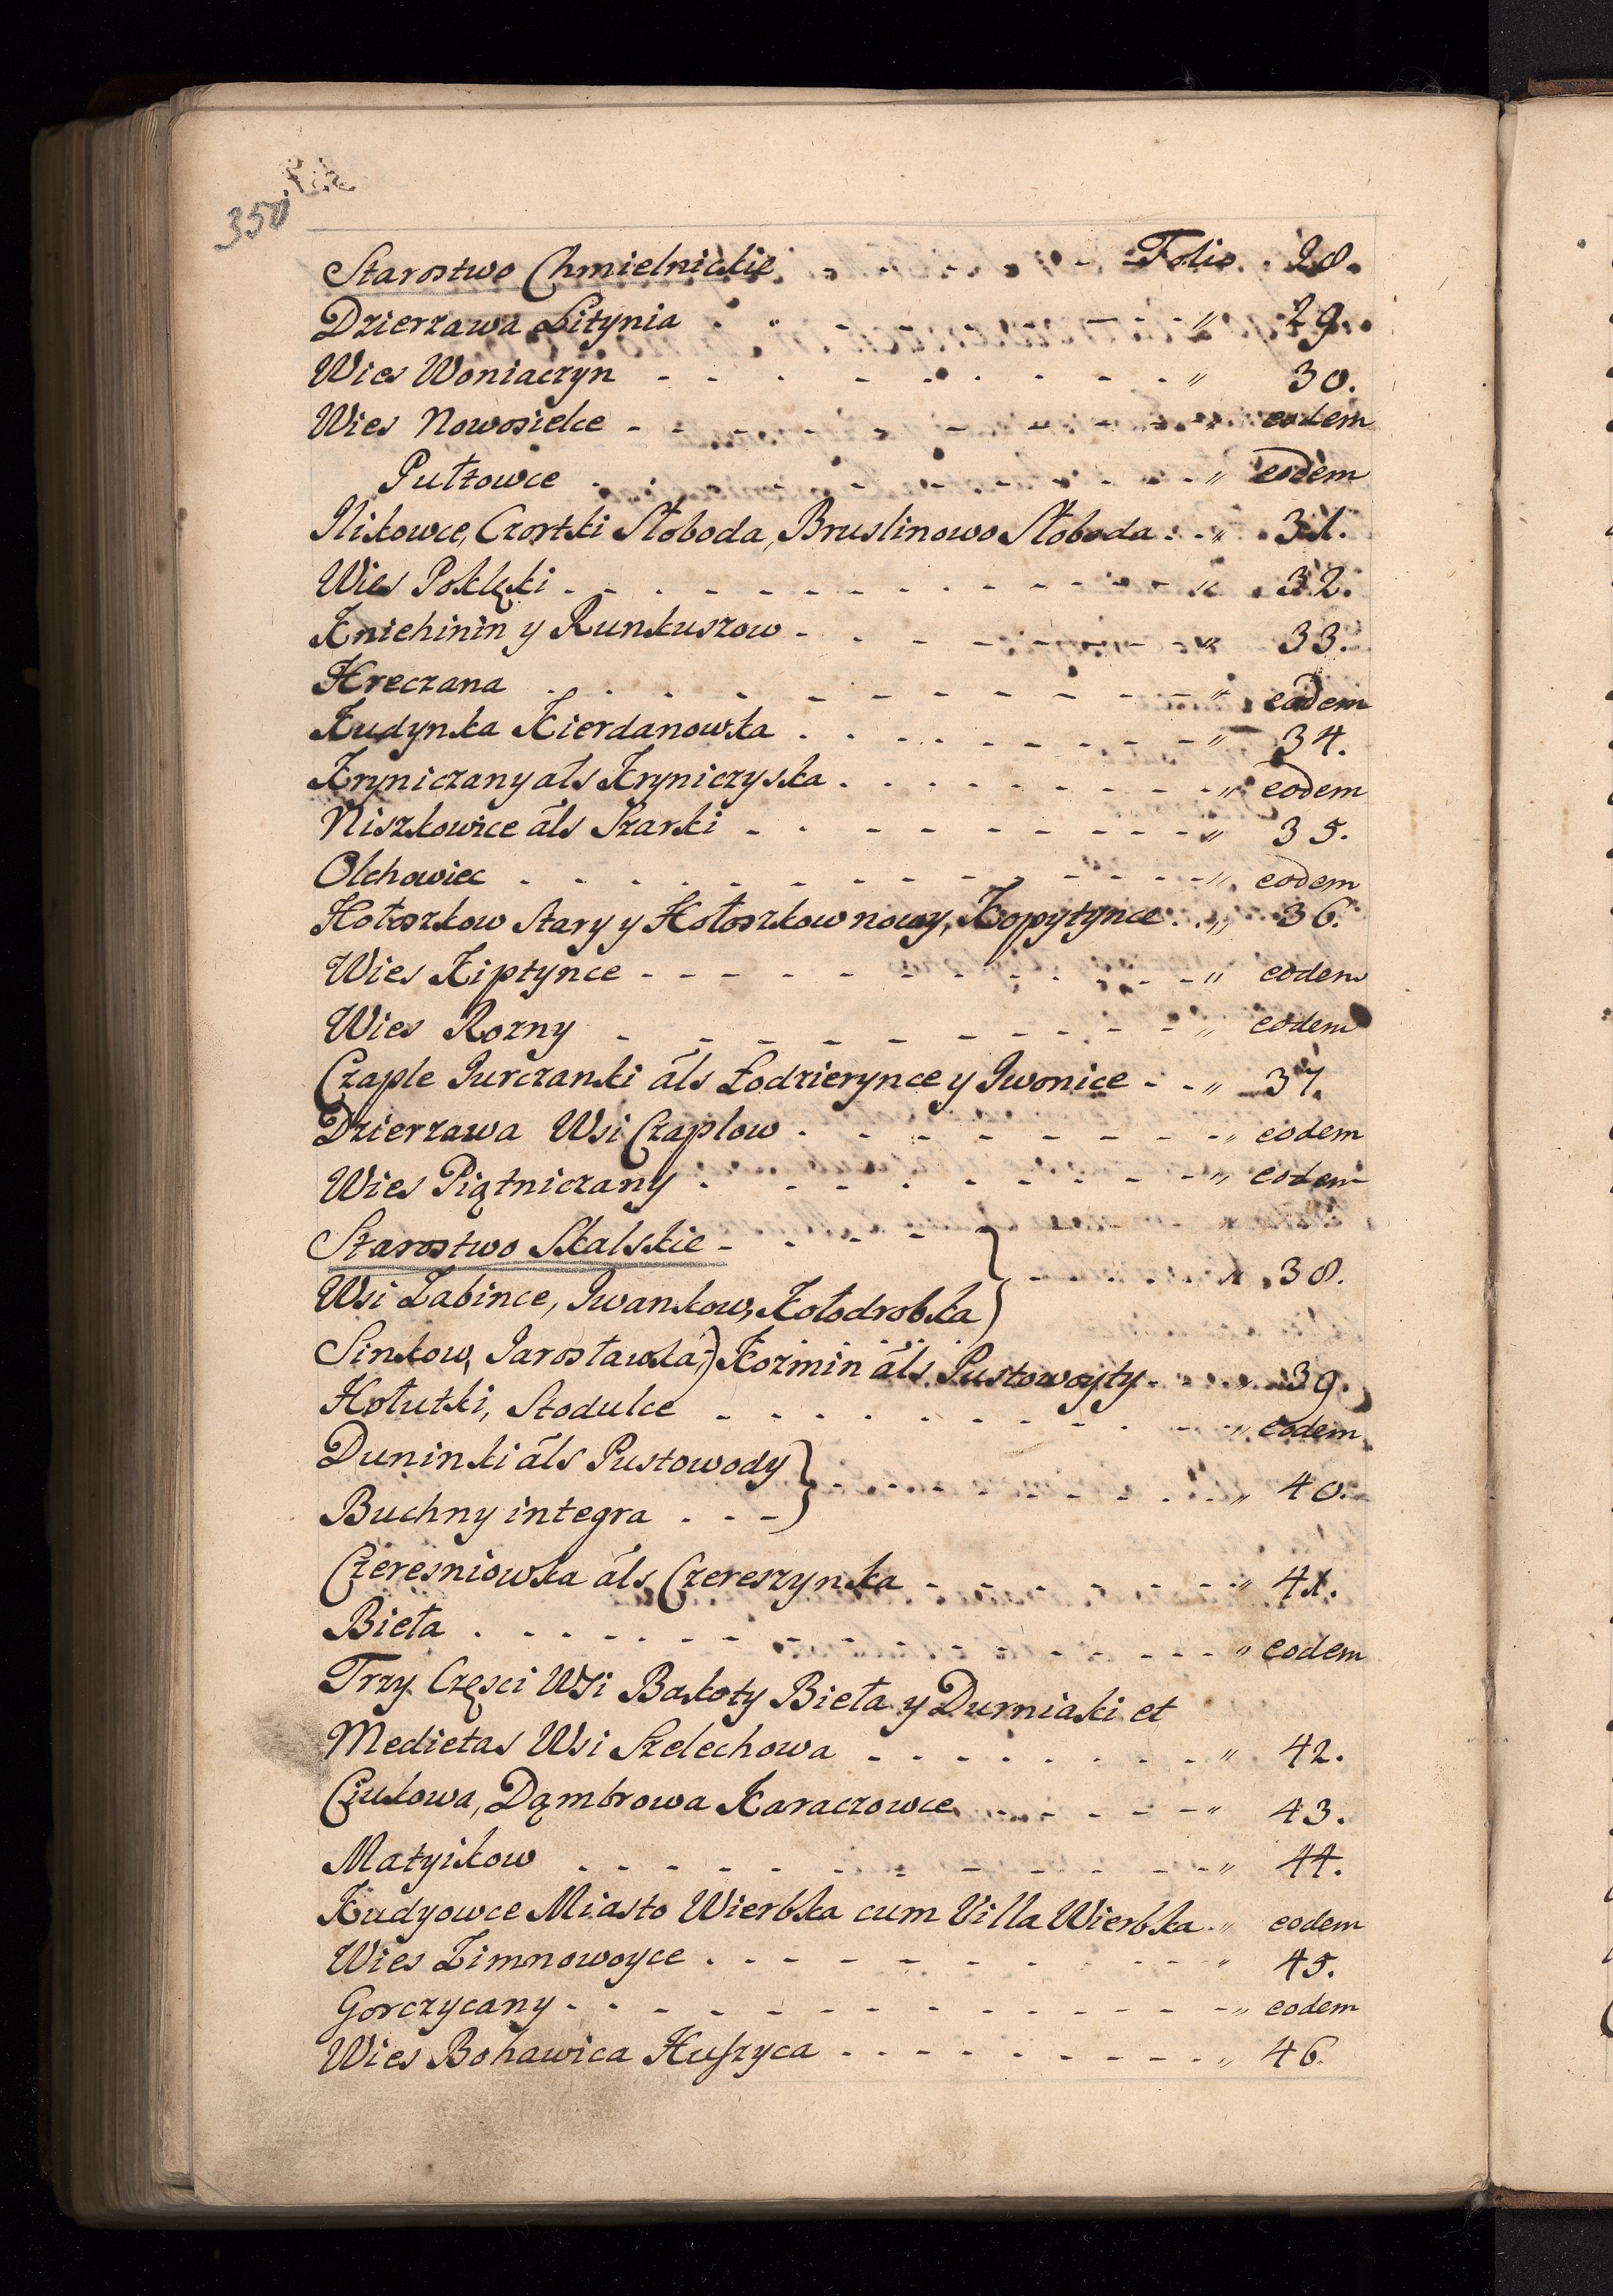 350
Starostwo Chmielnickie - - - Folio. 28.
Dzierzawa Litynia - - - „ 29.
Wies Woniaczyn - - - „ 30.
Wies Nowosielce - - - „ eodem
Pułtowce - - - „ eodem
Ilikowce, Czortki Słoboda, Bruslinowo Słoboda - - „ 31.
Wies Poklęki - - - „ 32.
Kniehinin y Runkuszow - - - „ 33.
Hreczana - - - „ eodem
Kudynka Kierdanowka - - - „ 34.
Kryniczany als Kryniczyska - - - „ eodem
Niszkowice als Szarki - - - „ 35.
Olchowiec - - - „ eodem
Hołoszkow Stary y Hołoszkow nowy, Kopytynce - „ 36.
Wies Kiptynce - - - „ eodem
Wies Rozny - - - „ eodem
Czaple Jurczanki als Łodzierynce y Jwonice - - „ 37.
Dzierzawa Wsi Czaplow - - - „ eodem
Wies Piątniczany - - - „ eodem
Starostwo Skalskie - - - }
Wsi Zabince, Jwankow, Kołodrobka } - - - „ 38.
Sinkow, Jarosławka,) Kozmin als Pustowoyty - - - „ 39.
Hołutki, Stodulce - - - „ eodem
Duninki als Pustowody }
Buchny integra - - - } - - - „ 40.
Czeresniowka als Czereszynka - - - „ 41.
Bieła - - - „ eodem
Trzy Częsci Wsi Bakoty Bieła y Durniaki et
Medietas Wsi Szelechowa - - - „ 42.
Czukowa, Dąmbrowa Karaczowce - - - „ 43.
Matyikow - - - „ 44.
Kudyowce Miasto Wierbka cum Villa Wierbka - „ eodem
Wies Zimnowoyce - - - „ 45.
Gorczycany - - - „ eodem
Wies Bohawica Huszyca - - - „ 46.